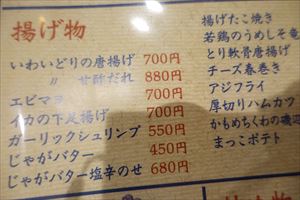 揚げ物
いわいどりの唐揚げ 700円
〃 甘酢だれ 880円
エビマヨ 700円
イカの下足揚げ 700円
ガーリックシュリンプ 550円
じゃがバター 450円
じゃがバター塩辛のせ 680円
揚げたこ焼き
若鶏のうめしそ竜
とり軟骨唐揚げ
チーズ春巻き
アジフライ
厚切りハムカツ
かもめちくわの磯辺
まっこポテト